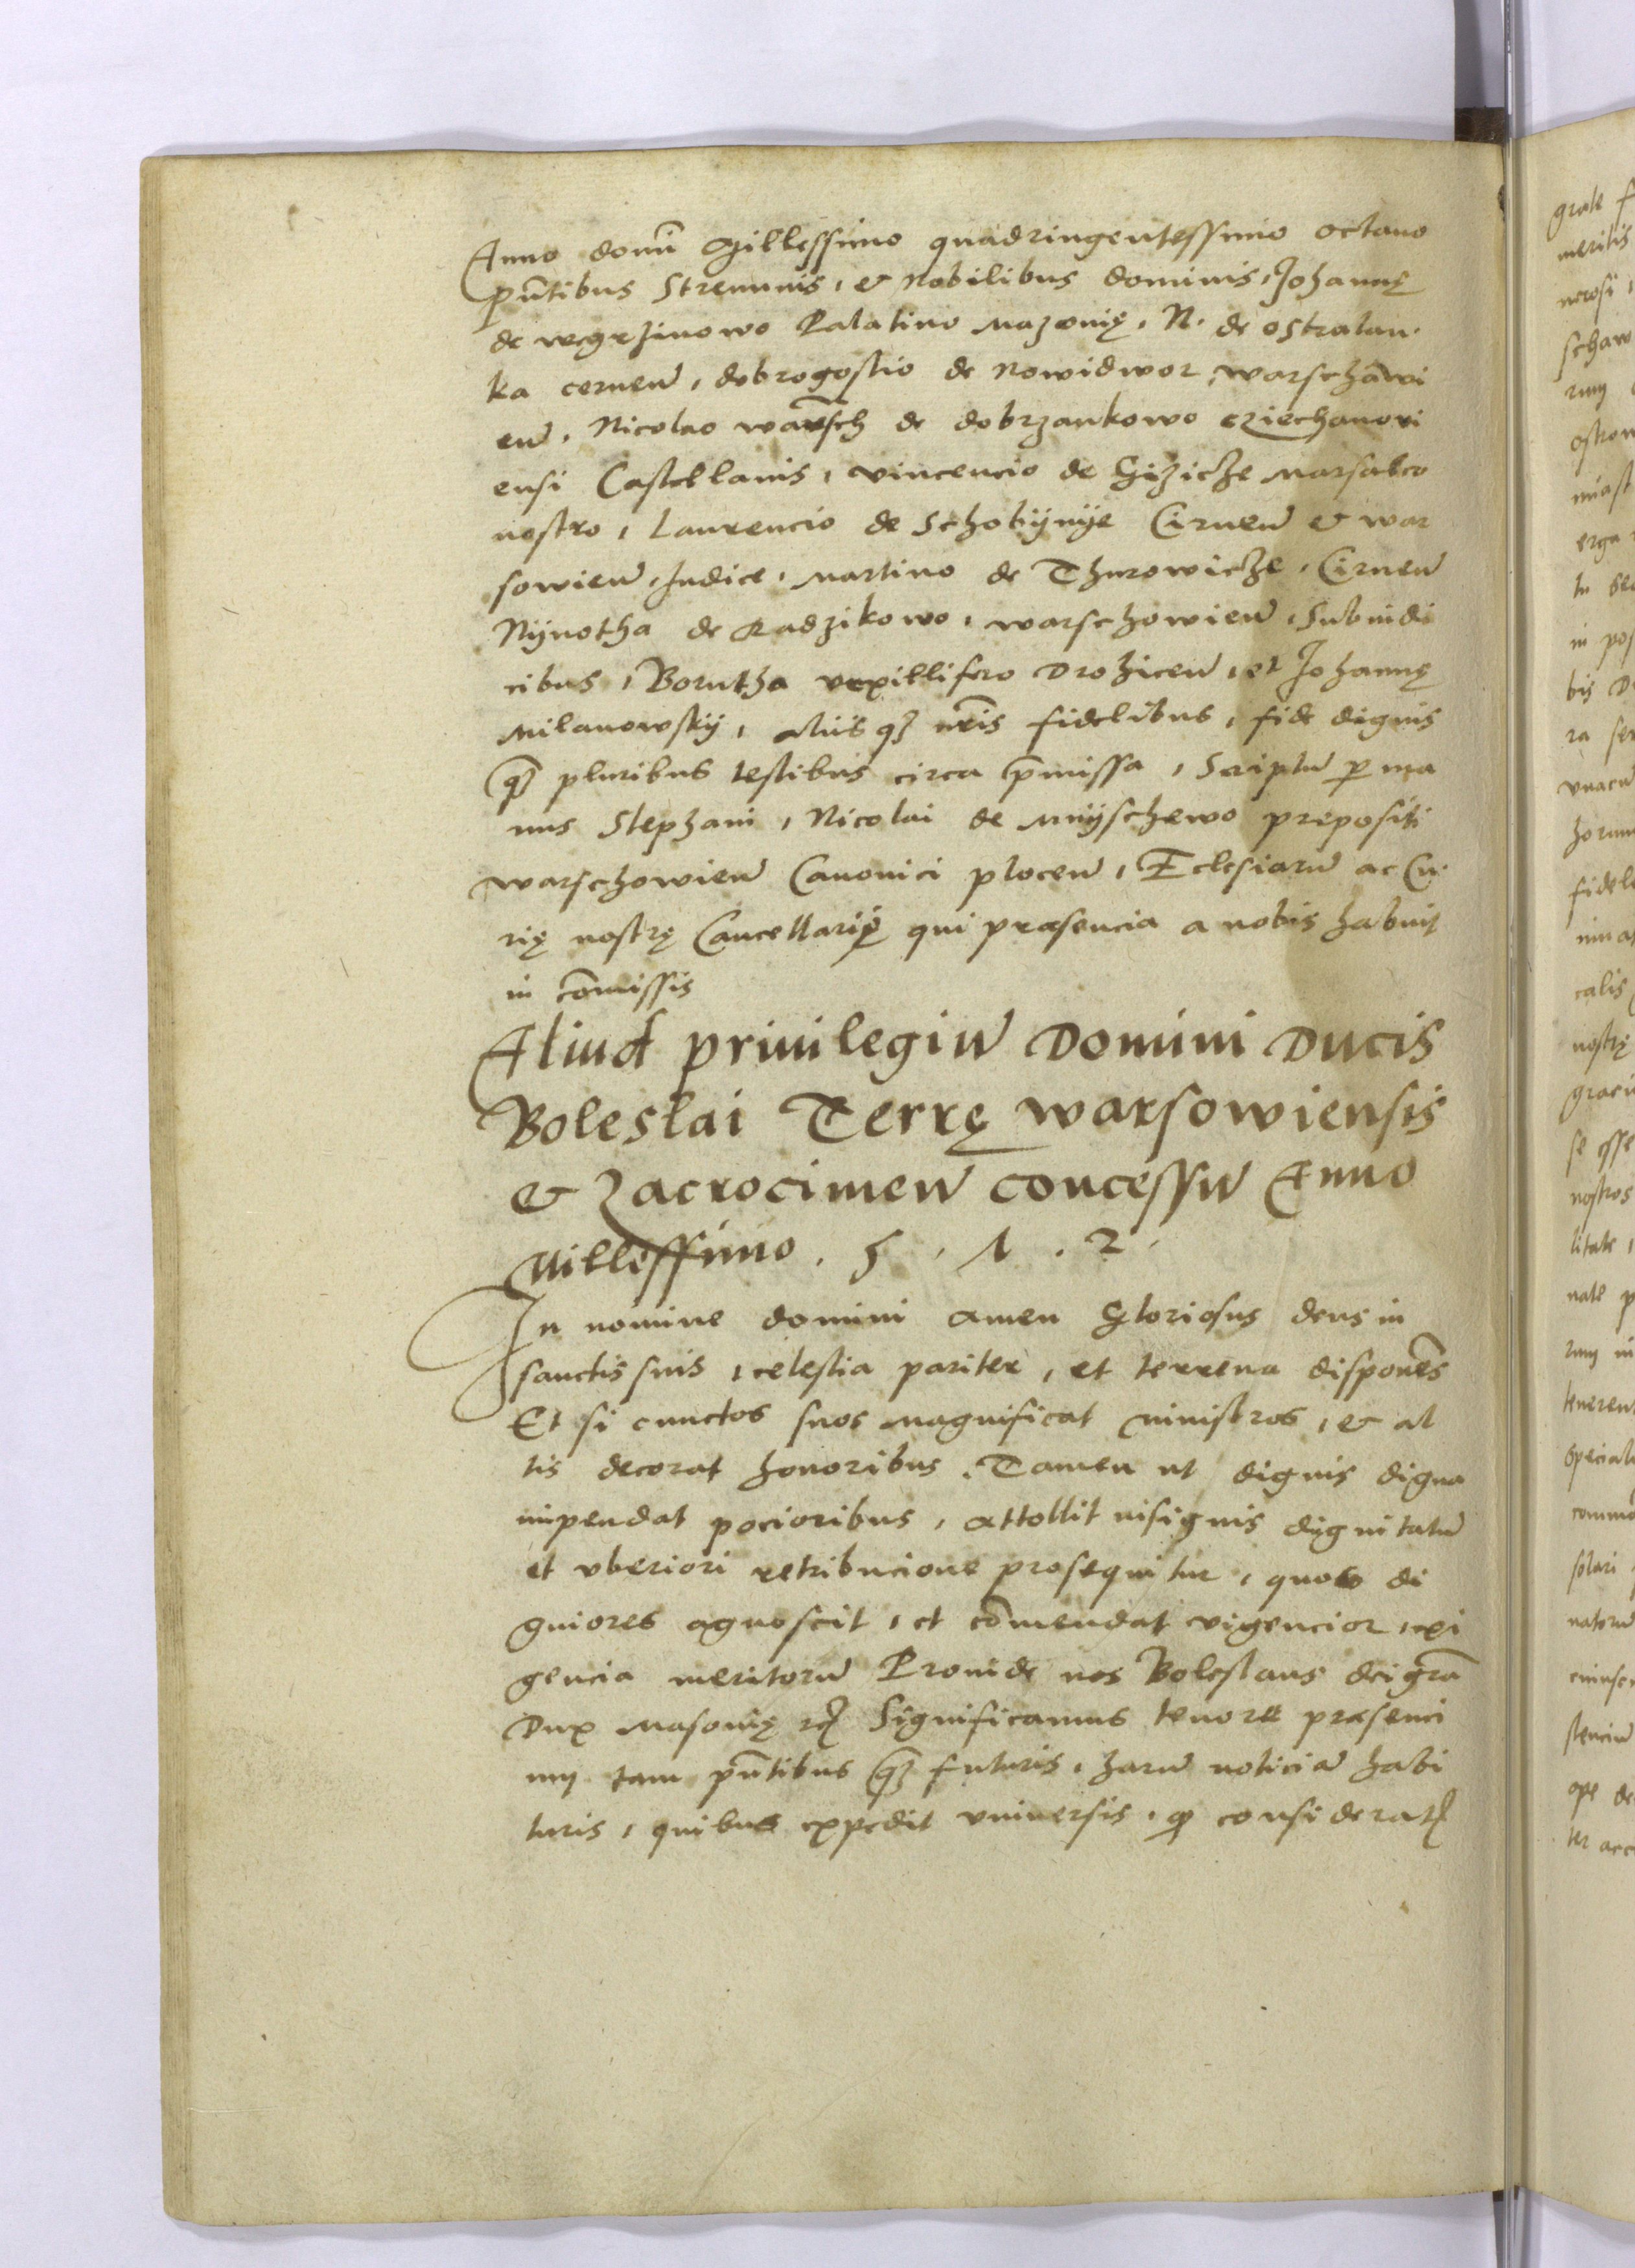 Anno domī Millessimo quadringentessimo octauo
pn̄tibus Strenuuis, & Nobilibus dominis, Johannę
de wegrzinowo Palatino Mazouię, N. de ostralan.
ka cernen̄, dobrogostio de Nowidwor warschawi
en̄, Nicolao warsch de dobrzankowo cziechanovi
ensi Castellanis, vincencio de Gizicze Marsalco
nostro, Laurencio de Schobÿnÿe Cirnen̄ & war
sowien̄, Judice, Martino de Thurowicze, Cirnen̄
Nÿnotha de Radzikowo, warschowien̄, Subiudi
cibus, Borutha vexillifero Drohicen̄, et Johannę
Milanowskÿ, aliis qꝫ nr̄is fidelibus, fide dignis
qꝫ pluribus testibus circa p̄missa, Scriptū ꝑ ma
nus Stephani, Nicolai de Mnÿschewo prepositi
warschowien̄ Canonici plocen̄, Eclesiarū ac Cu.
rię nostrę Cancellarii qui præsencia a nobis habuit
in com̄issis
Aliud priuilegiū Domini Ducis
Boleslai Terrę warsowiensis
& Zacrocimen̄ concessū Anno
Millessimo . 5 . 1 . 2 .
In nomine domini amen Gloriosus deus in
sanctis suis, celestia pariter, et terrena dispone͂s
Et si cunctos suos magnificat ministros, & al
tis decorat honoribus. Tamen ut dignis digna
impendat pocioribus, attollit insignis dÿgnitatū
et vberiori retribucione prosequitur, quos di
gniores agnoscit, et com̄endat vigencior, exi
gencia meritorū Prouide nos Boleslaus dei gr̄a
Dux Masouię rc̄ Significamus tenore præsenci
um tam pn̄tibus qꝫ futuris, harū noticiā habi
turis, quibus expedit vniuersis, ꝙ consideratꝭ